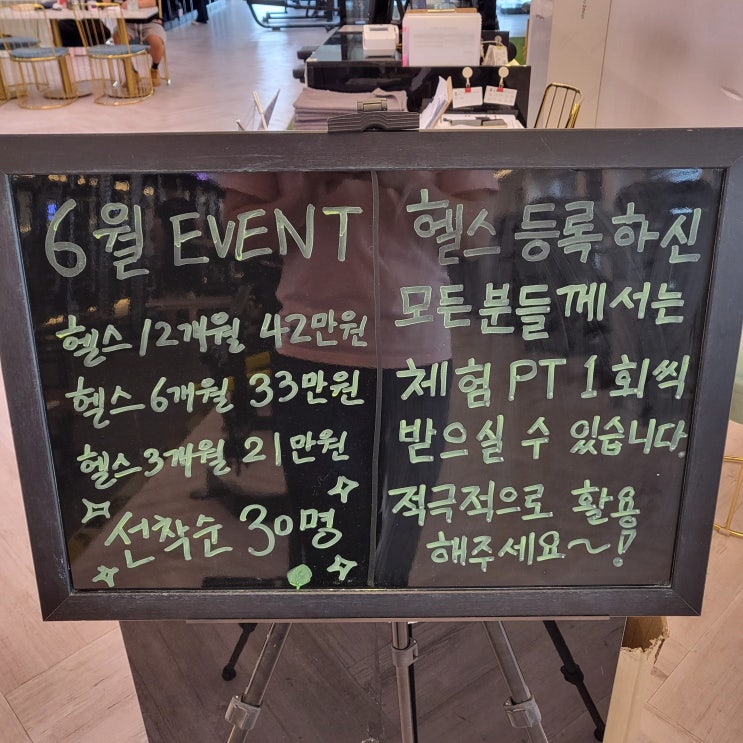 6월 EVENT
헬스 12개월 42만원
헬스 6개월 33만원
헬스 3개월 21만원
선착순 30명
헬스 등록하신
모든분들께서는
체험PT 1회씩
받으실 수 있습니다.
적극적으로 활용
해주세요~!